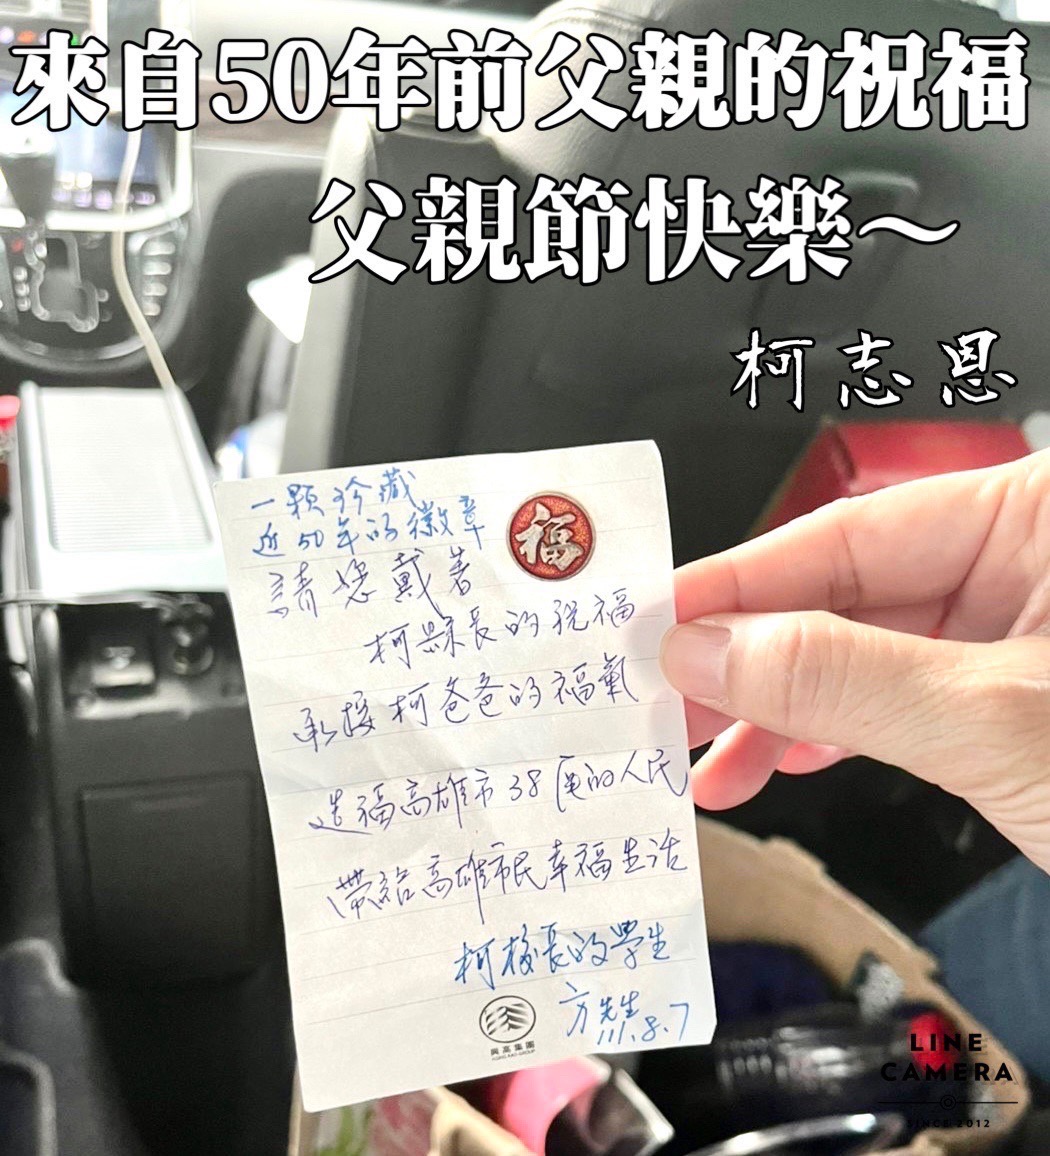 來自50年前父親的祝福
父親節快樂～
柯志恩
一顆珍藏
近50年的徽章
福
請您戴著
柯縣長的祝福
承接柯爸爸的福氣
造福高雄市38區的人民
帶給高雄市民幸福生活
柯校長的學生
方先生 111.8.7
興高集團
LINE
CAMERA
SINCE 2012